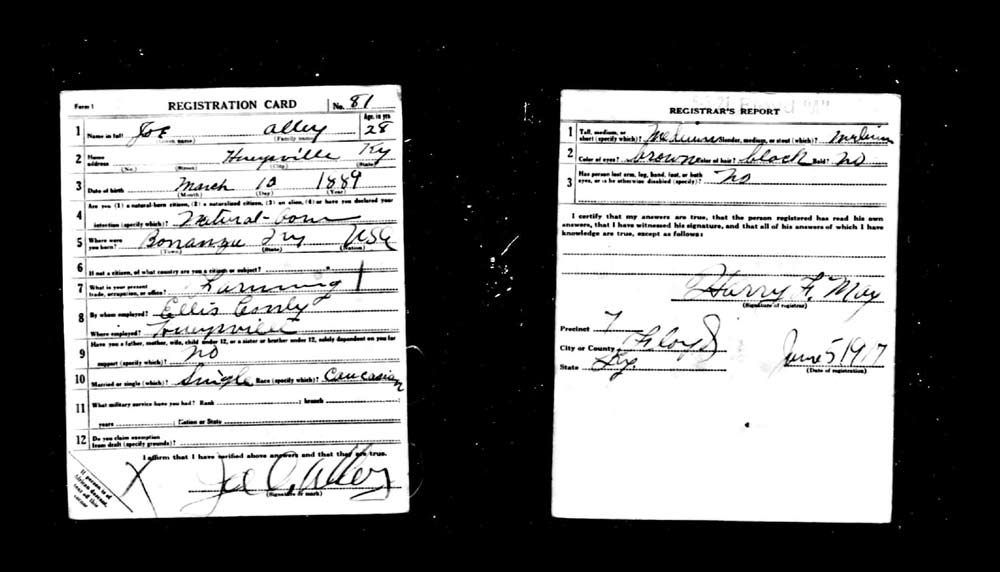 Form 1 REGISTRATION CARD No. 81
1 Name in full Joe Alley Age, in yrs. 28
(Given name) (Family name)
2 Home address Hueysville Ky
(No.) (Street) (City) (State)
3 Date of birth March 10 1889
(Month) (Day) (Year)
Are you (1) a natural-born citizen, (2) a naturalized citizen, (3) an alien, (4) or have you declared your
4 intention (specify which)? Natural-born
5 Where were you born? Bonanza Ky USA
(Town) (State) (Nation)
6 If not a citizen, of what country are you a citizen or subject?
7 What is your present trade, occupation, or office? Farming 1
8 By whom employed? Ellis Conly
Where employed? Hueysville
Have you a father, mother, wife, child under 12, or a sister or brother under 12, solely dependent on you for
9 support (specify which)? no
10 Married or single (which)? Single Race (specify which)? Caucasian
11 What military service have you had? Rank ; branch ;
years ; Nation or State
12 Do you claim exemption from draft (specify grounds)?
I affirm that I have verified above answers and that they are true.
X Joe C. Alley
(Signature or mark)
If person is of
African descent,
tear off this
corner
REGISTRAR'S REPORT
1 Tall, medium, or short (specify which)? Medium Slender, medium, or stout (which)? Medium
2 Color of eyes? brown Color of hair? black Bald? no
3 Has person lost arm, leg, hand, foot, or both eyes, or is he otherwise disabled (specify)? No
I certify that my answers are true, that the person registered has read his own
answers, that I have witnessed his signature, and that all of his answers of which I have
knowledge are true, except as follows:
Harry F. May
(Signature of registrar)
Precinct 7
City or County Floyd
State Ky. June 5 1917
(Date of registration)